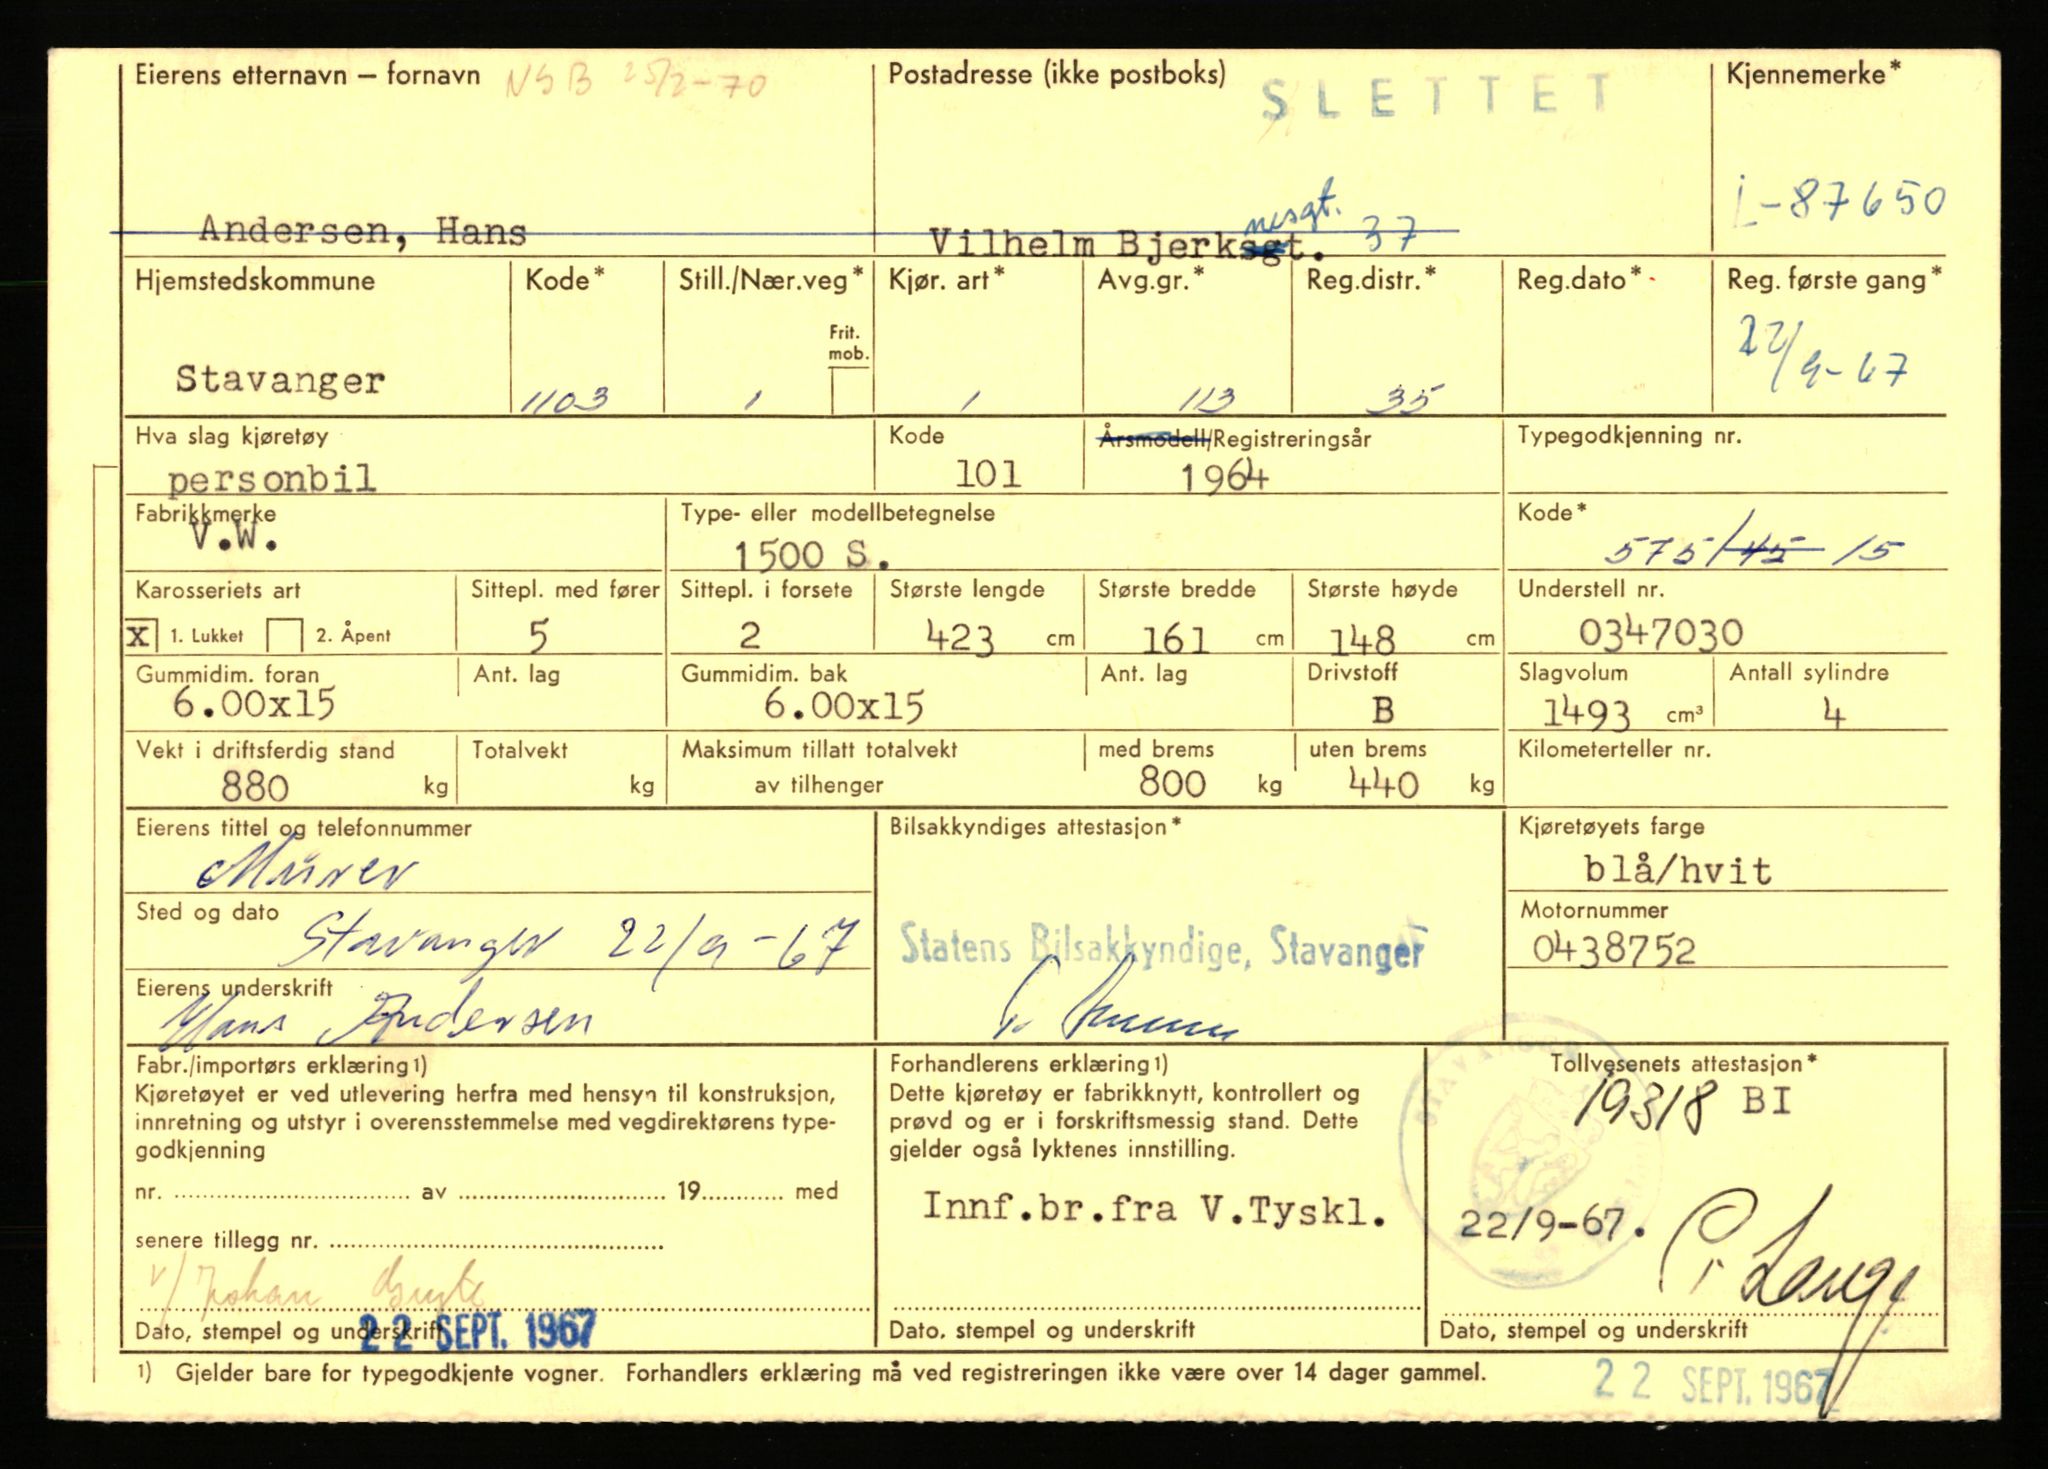 Eierens etternavn – fornavn NSB 25/2-70
Postadresse (ikke postboks)
SLETTET
Kjennemerke*
Andersen, Hans
Vilhelm Bjerksgt. nesgt. 37
L-87650
Hjemstedskommune
Kode*
Still./Nær.veg*
Kjør. art*
Avg.gr.*
Reg.distr.*
Reg.dato*
Reg. første gang*
Frit. mob.
Stavanger
1103
1
1
113
35
22/9-67
Hva slag kjøretøy
Kode
Årsmodell/Registreringsår
Typegodkjenning nr.
personbil
101
1964
Fabrikkmerke
Type- eller modellbetegnelse
Kode*
V.W.
1500 S.
575/45 15
Karosseriets art
Sittepl. med fører
Sittepl. i forsete
Største lengde
Største bredde
Største høyde
Understell nr.
X 1. Lukket 2. Åpent
5
2
423 cm
161 cm
148 cm
0347030
Gummidim. foran
Ant. lag
Gummidim. bak
Ant. lag
Drivstoff
Slagvolum
Antall sylindre
6.00x15
6.00x15
B
1493 cm³
4
Vekt i driftsferdig stand
Totalvekt
Maksimum tillatt totalvekt
med brems
uten brems
Kilometerteller nr.
880 kg
kg
av tilhenger
800 kg
440 kg
Eierens tittel og telefonnummer
Bilsakkyndiges attestasjon*
Kjøretøyets farge
Murer
blå/hvit
Sted og dato
Motornummer
Stavanger 22/9-67
Statens Bilsakkyndige, Stavanger
0438752
Eierens underskrift
Hans Andersen
Fabr./importørs erklæring 1)
Kjøretøyet er ved utlevering herfra med hensyn til konstruksjon,
innretning og utstyr i overensstemmelse med vegdirektørens type-
godkjenning
nr. .......... av .......... 19.......... med
senere tillegg nr. ..........
v/ Johan
22 SEPT. 1967
Dato, stempel og underskrift
Forhandlerens erklæring 1)
Dette kjøretøy er fabrikknytt, kontrollert og
prøvd og er i forskriftsmessig stand. Dette
gjelder også lyktenes innstilling.
Innf.br.fra V.Tyskl.
Dato. stempel og underskrift
Tollvesenets attestasjon*
19318 BI
STAVANGER
22/9-67.
Lange
Dato, stempel og underskrift
1) Gjelder bare for typegodkjente vogner. Forhandlers erklæring må ved registreringen ikke være over 14 dager gammel.
22 SEPT. 1967